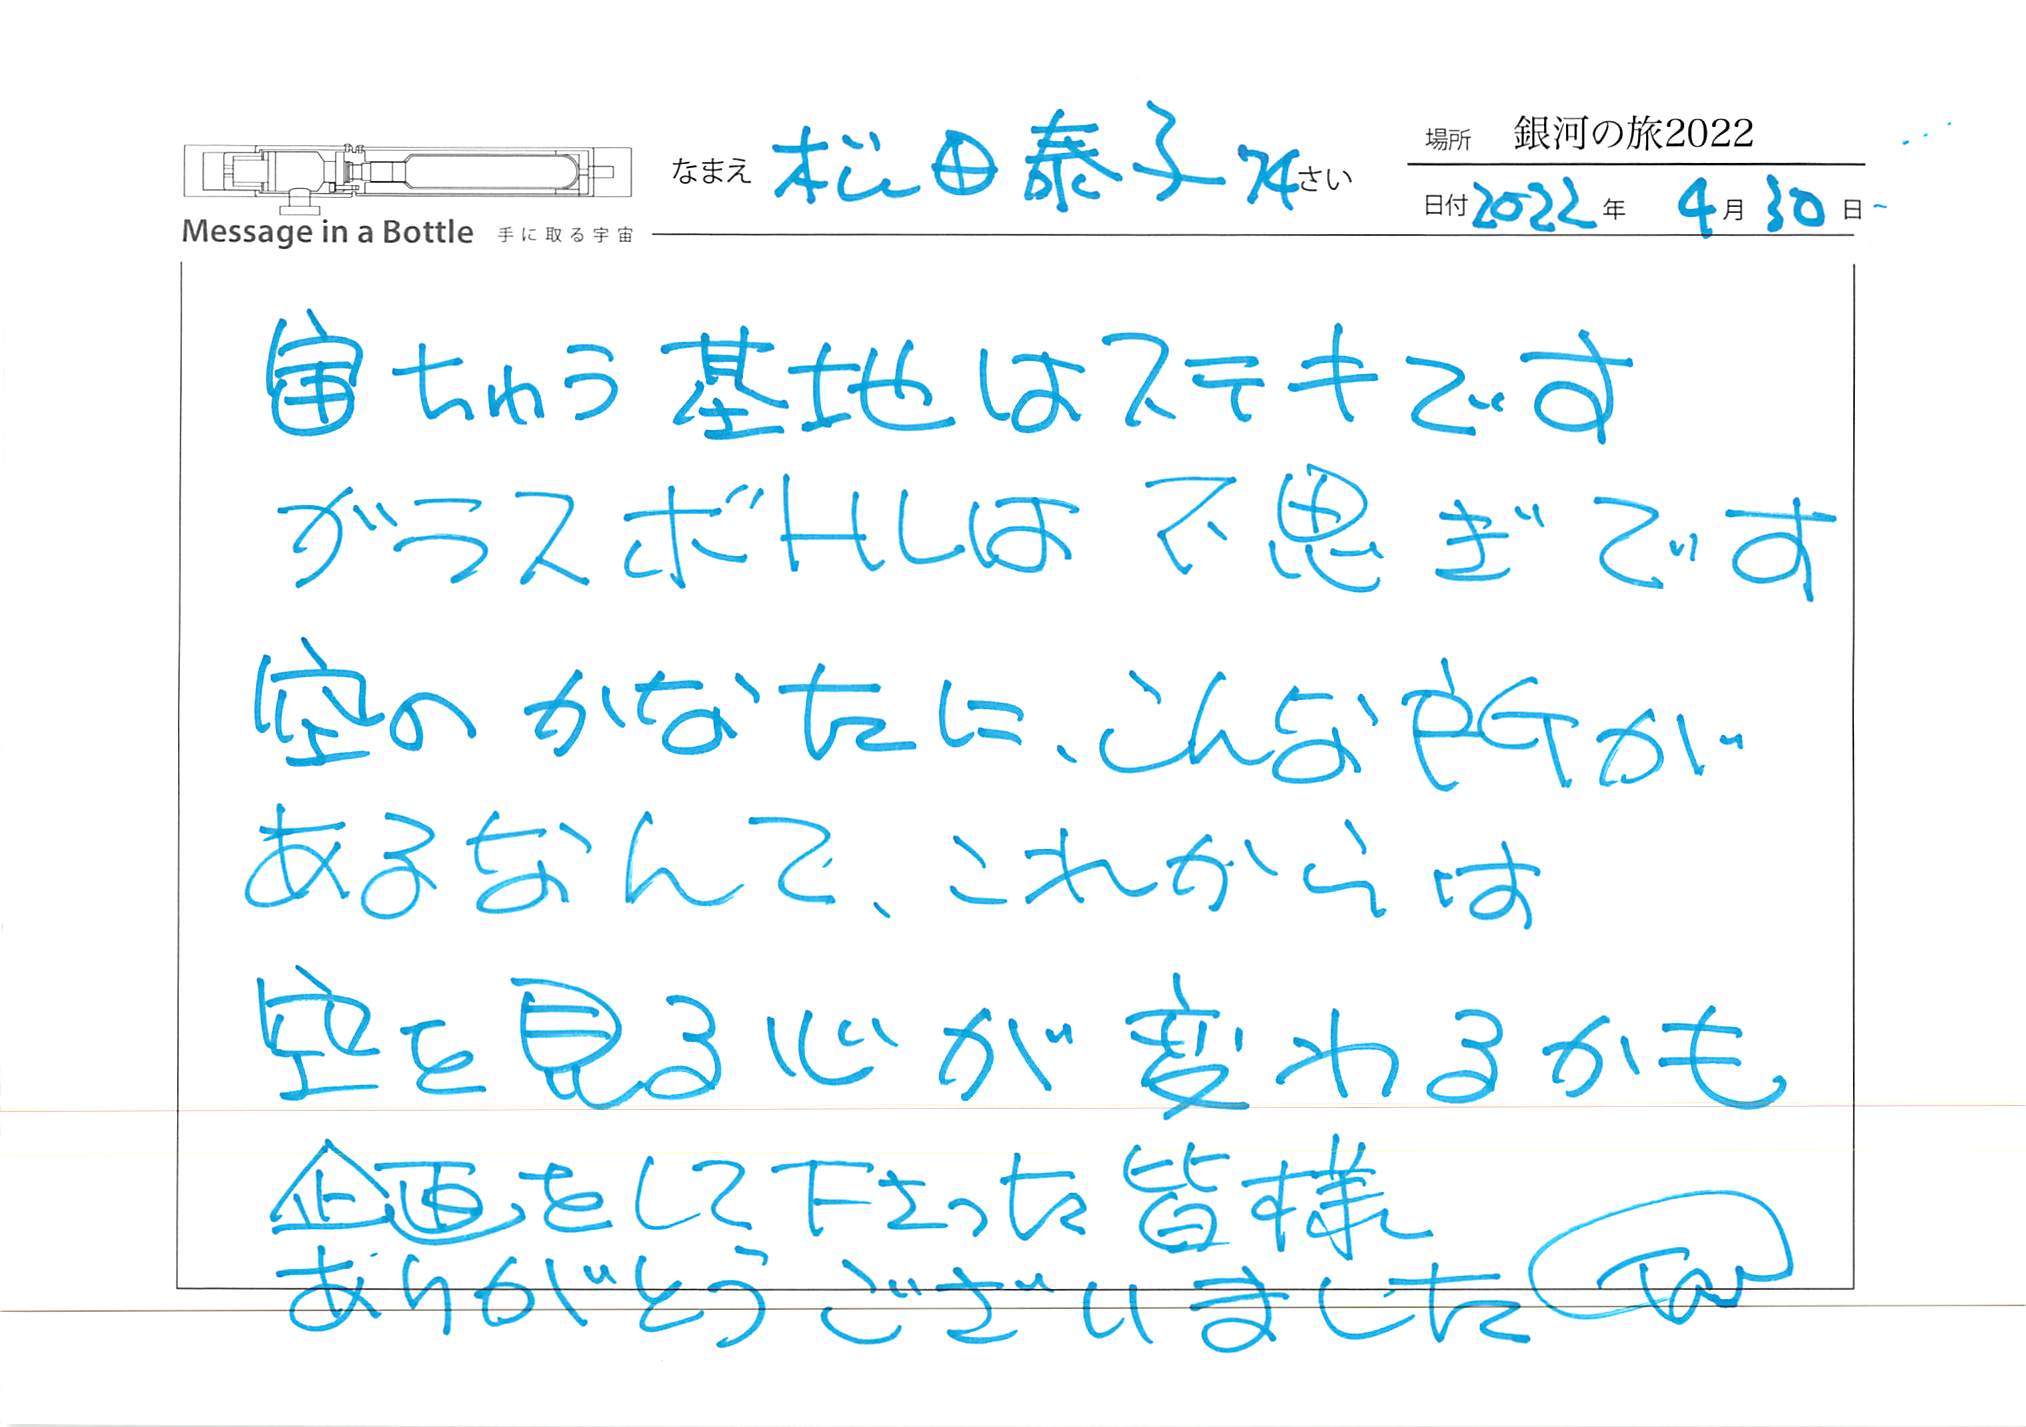 なまえ 松田泰子 74さい
場所 銀河の旅2022
日付 2022年 4月 30日
Message in a Bottle 手に取る宇宙
宙ちゅう基地はステキです
ガラスボトルは不思ぎです
空のかなたに、こんな所が
あるなんて、これからは
空を見る心が変わるかも
企画をして下さった皆様
ありがとうございました